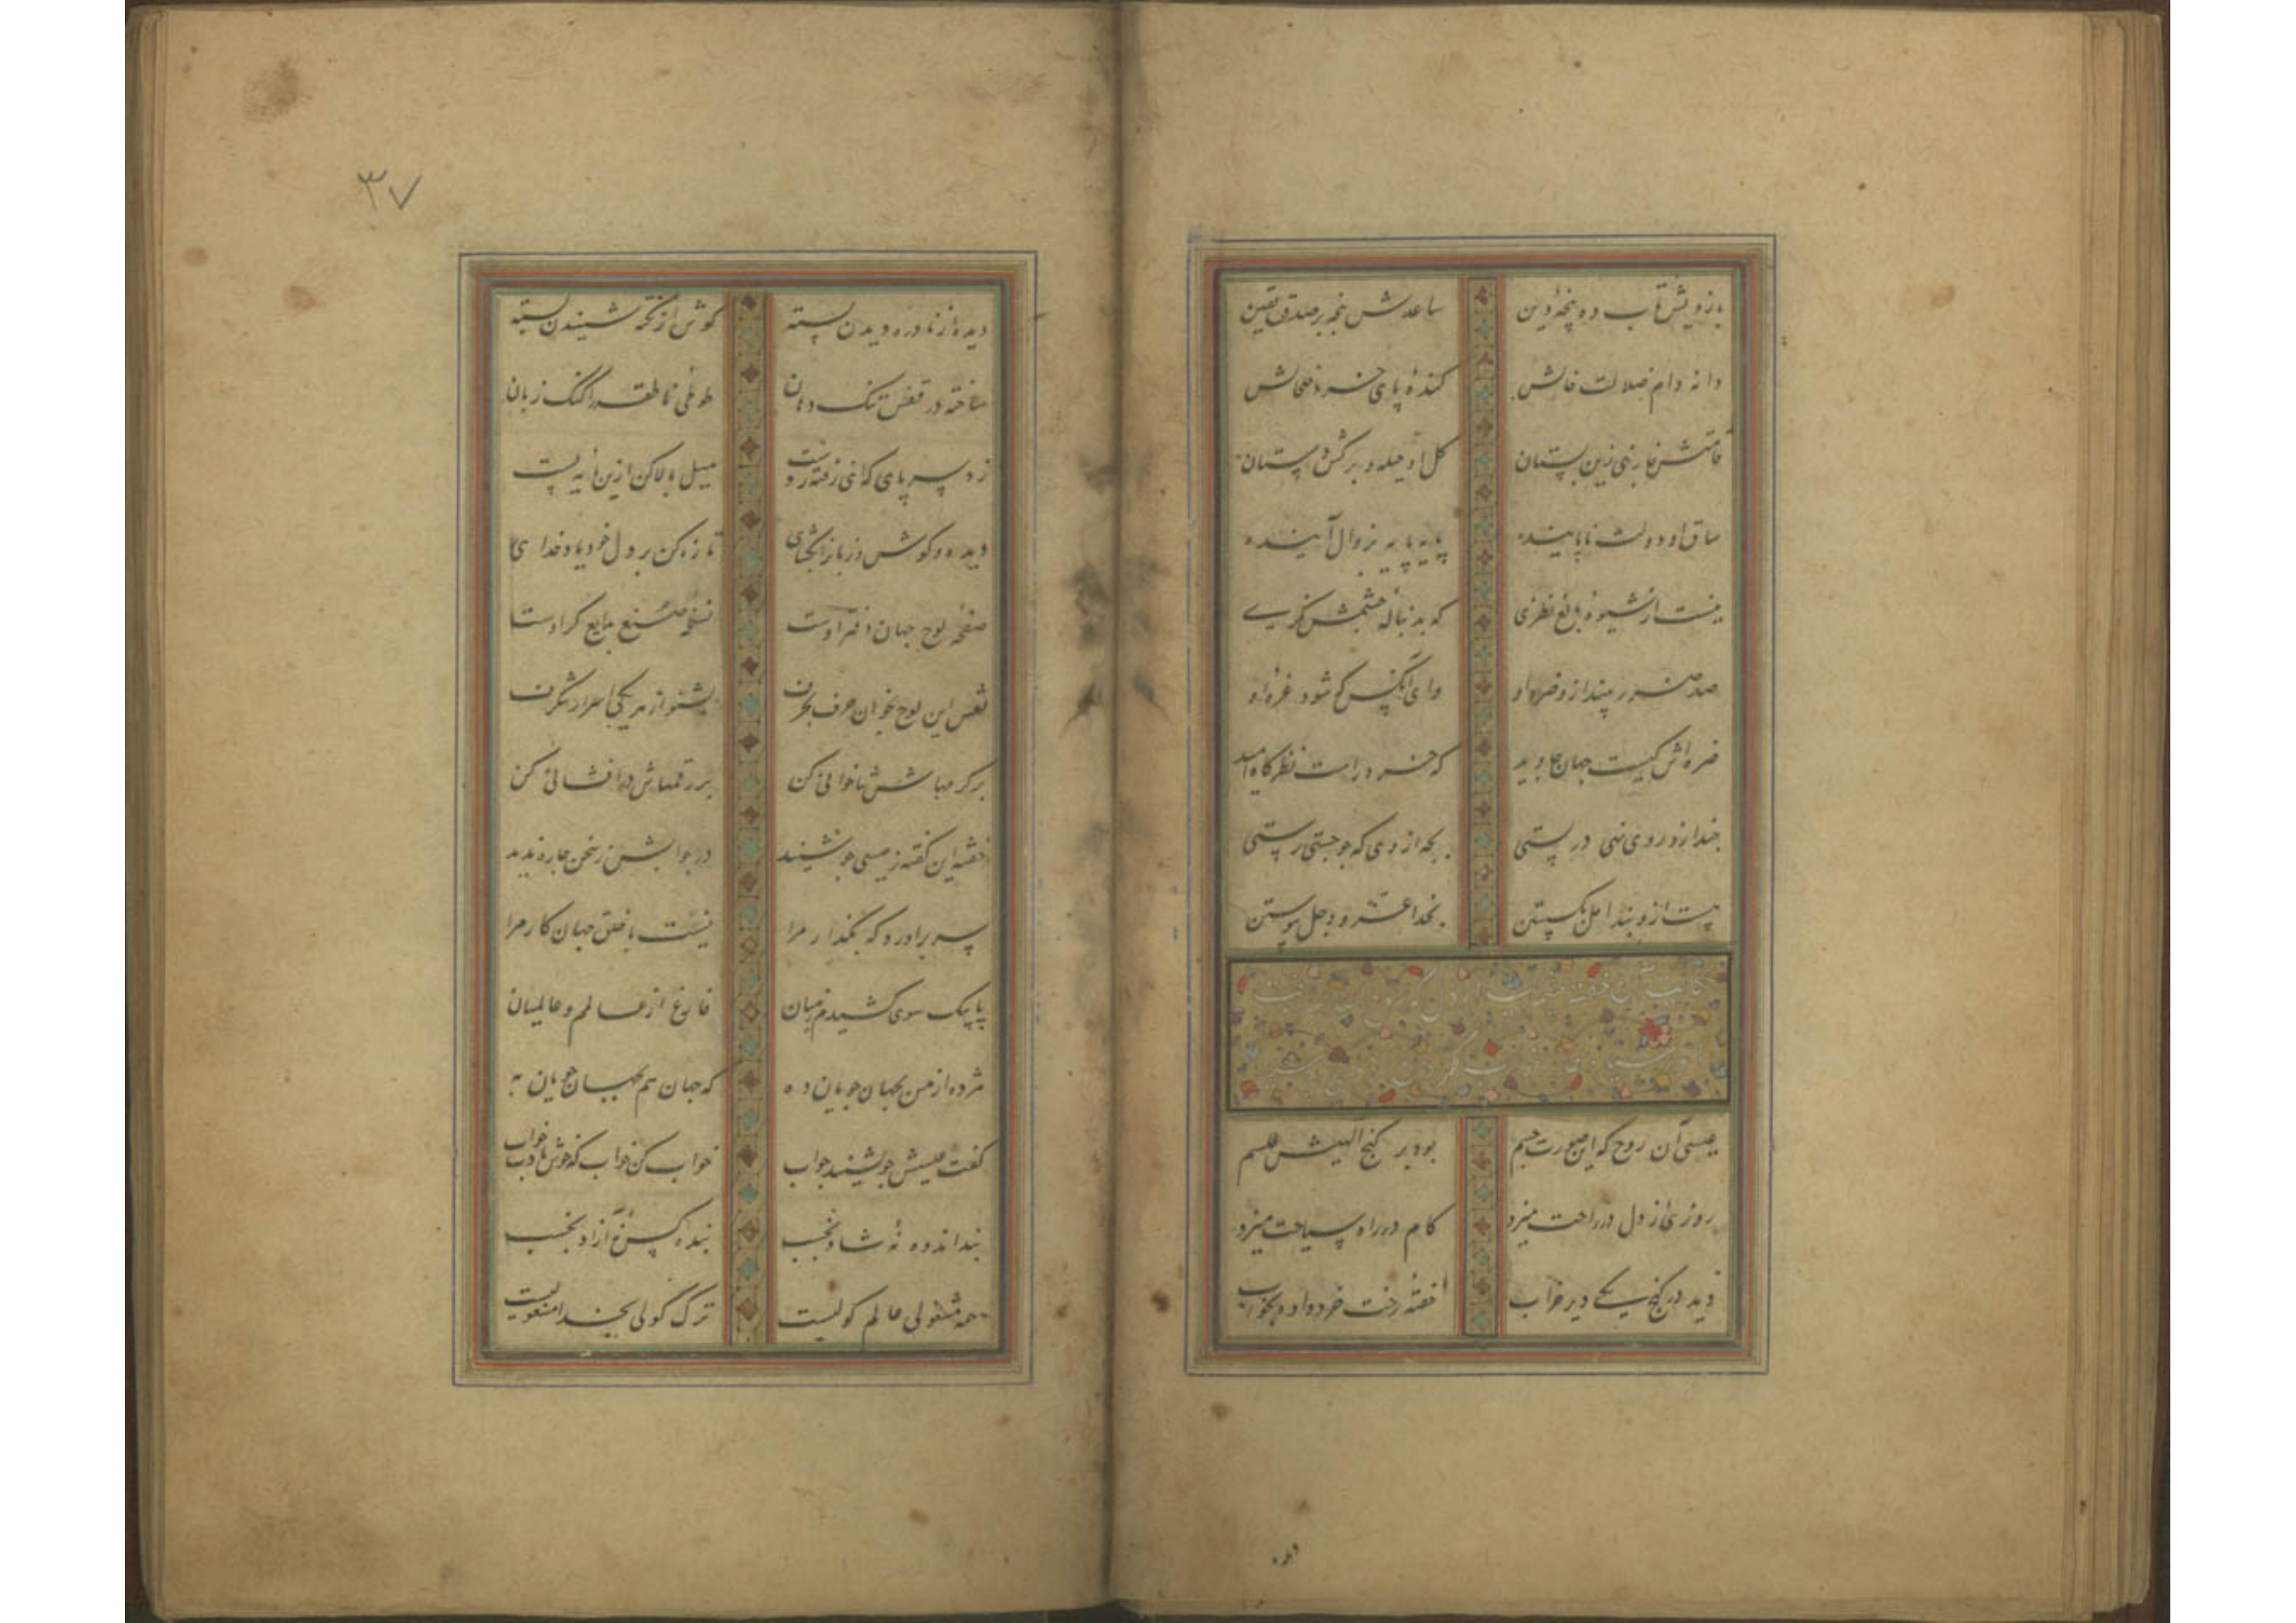 بازویش تاب ده پنجه دین ساعدش پنجه بر صدق یقین
دانه دام ضلالت خالش کنده پای خرد خلخالش
قامتش خار بنی زین بستان گل او حیله و برگش دستان
ساق او دولت ناپاینده پایه پایه بزوال آینده
نیست از شیوه بالغ نظری که بدنباله چشمش نگری
صد ضرر بیند از و ضره او وای آنکس که شود غره او
ضره اش کیست جهان جاوید که خرد راست نظرگاه امید
چند ازو روی نهی در پستی بجه از وی که چو جستی رستی
چیست ازو بند امل بگسستن بخدا عز و جل پیوستن
حکایت آن خفته
عیسی آن روح که این صورت جسم بود بر گنج الهیش طلسم
روزی از دل در راحت میزد گام در راه سیاحت میزد
دید در کنج یکی دیر خراب خفته رخت خرد داده بخواب
دیده
۳۷
دیده از نادره دیدن بسته گوش از نکته شنیدن بسته
ساخته در قفس تنگ دهان طوطی ناطقه را گنگ زبان
زد بسر پای که ای رفته ز دست میل بالا کن ازین پایه پست
دیده و گوش و زبان بگشای تازه کن بر دل خود یاد خدای
صفحه لوح جهان دفتر اوست نسخه صنع بدایع گر اوست
نقش این لوح بخوان حرف بحرف بشنو از هر یکی اسرار شگرف
برگر مهاش ثناخوانی کن بر رقمهاش درافشانی کن
خفته این نکته ز عیسی چو شنید در جوابش ز سخن چاره ندید
سر برآورد که بگذار مرا نیست با خلق جهان کار مرا
پا بیک سوی کشیدم ز میان فارغ از عالم و عالمیان
مژده از من بجهان جویان ده که جهان هم بجهان جویان به
گفت عیسیش چو بشنید جواب خواب کن خواب که خوش بادت خواب
بند اندوه نه شاد بخسب بنده کس نه آزاد بخسب
همه مشغولی عالم گولیست ترک گولی بخدا مشغولیست